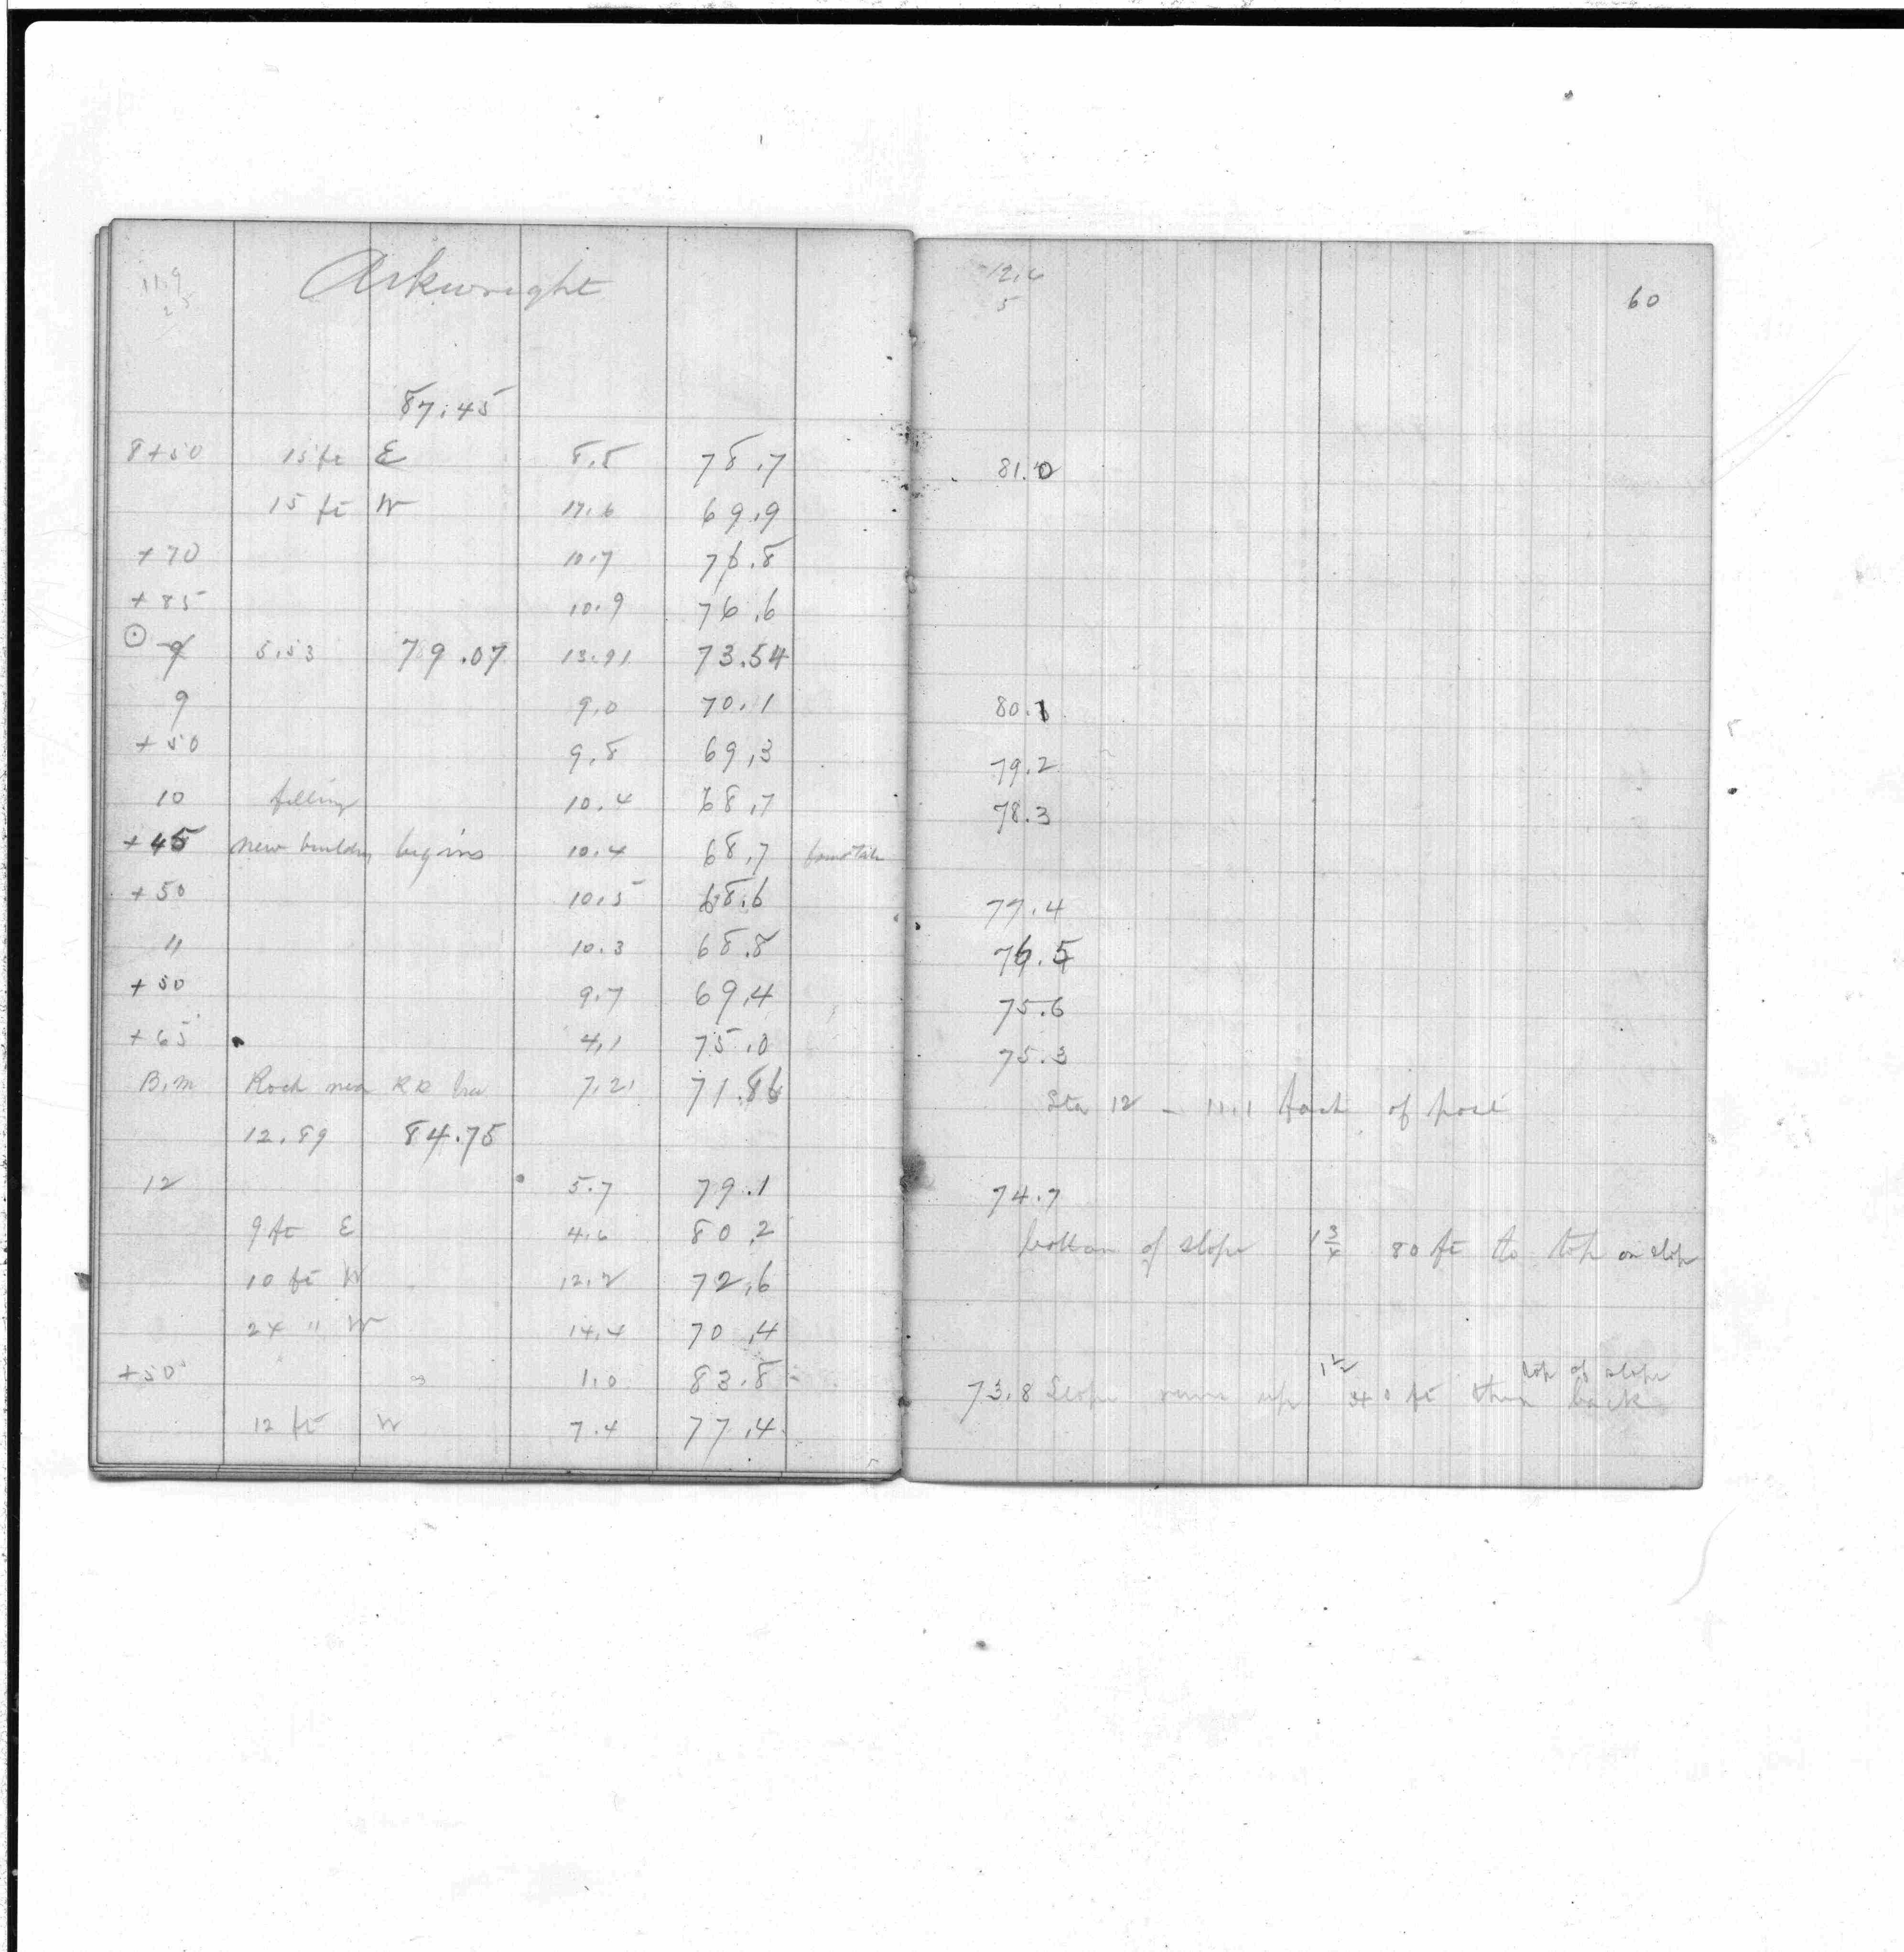 11.9
25
Arkwright
87.45
8+50 15 ft E 8.5 78.7
15 ft W 17.6 69.9
+70 10.7 76.8
+85 10.9 76.6
⊙ 9 5.53 79.07 13.91 73.54
9 9.0 70.1
+50 9.8 69.3
10 filling 10.4 68.7
+45 new building begins 10.4 68.7
+50 10.5 68.6
" 10.3 68.8
+50 9.7 69.4
+65 4.1 75.0
B.M Rock near RR 7.21 71.86
12.89 84.75
12 5.7 79.1
9 ft E 4.6 80.2
10 ft W 12.2 72.6
24 " W 14.4 70.4
+50 1.0 83.8
12 ft W 7.4 77.4
12.6
5
60
81.0
80.1
79.2
78.3
77.4
76.5
75.6
75.3
Sta 12 - 11.1 back of post
74.7
bottom of slope 1 3/4 80 ft to top on slope
top of slope
73.8 Slope runs up 1 1/2 40 ft then back